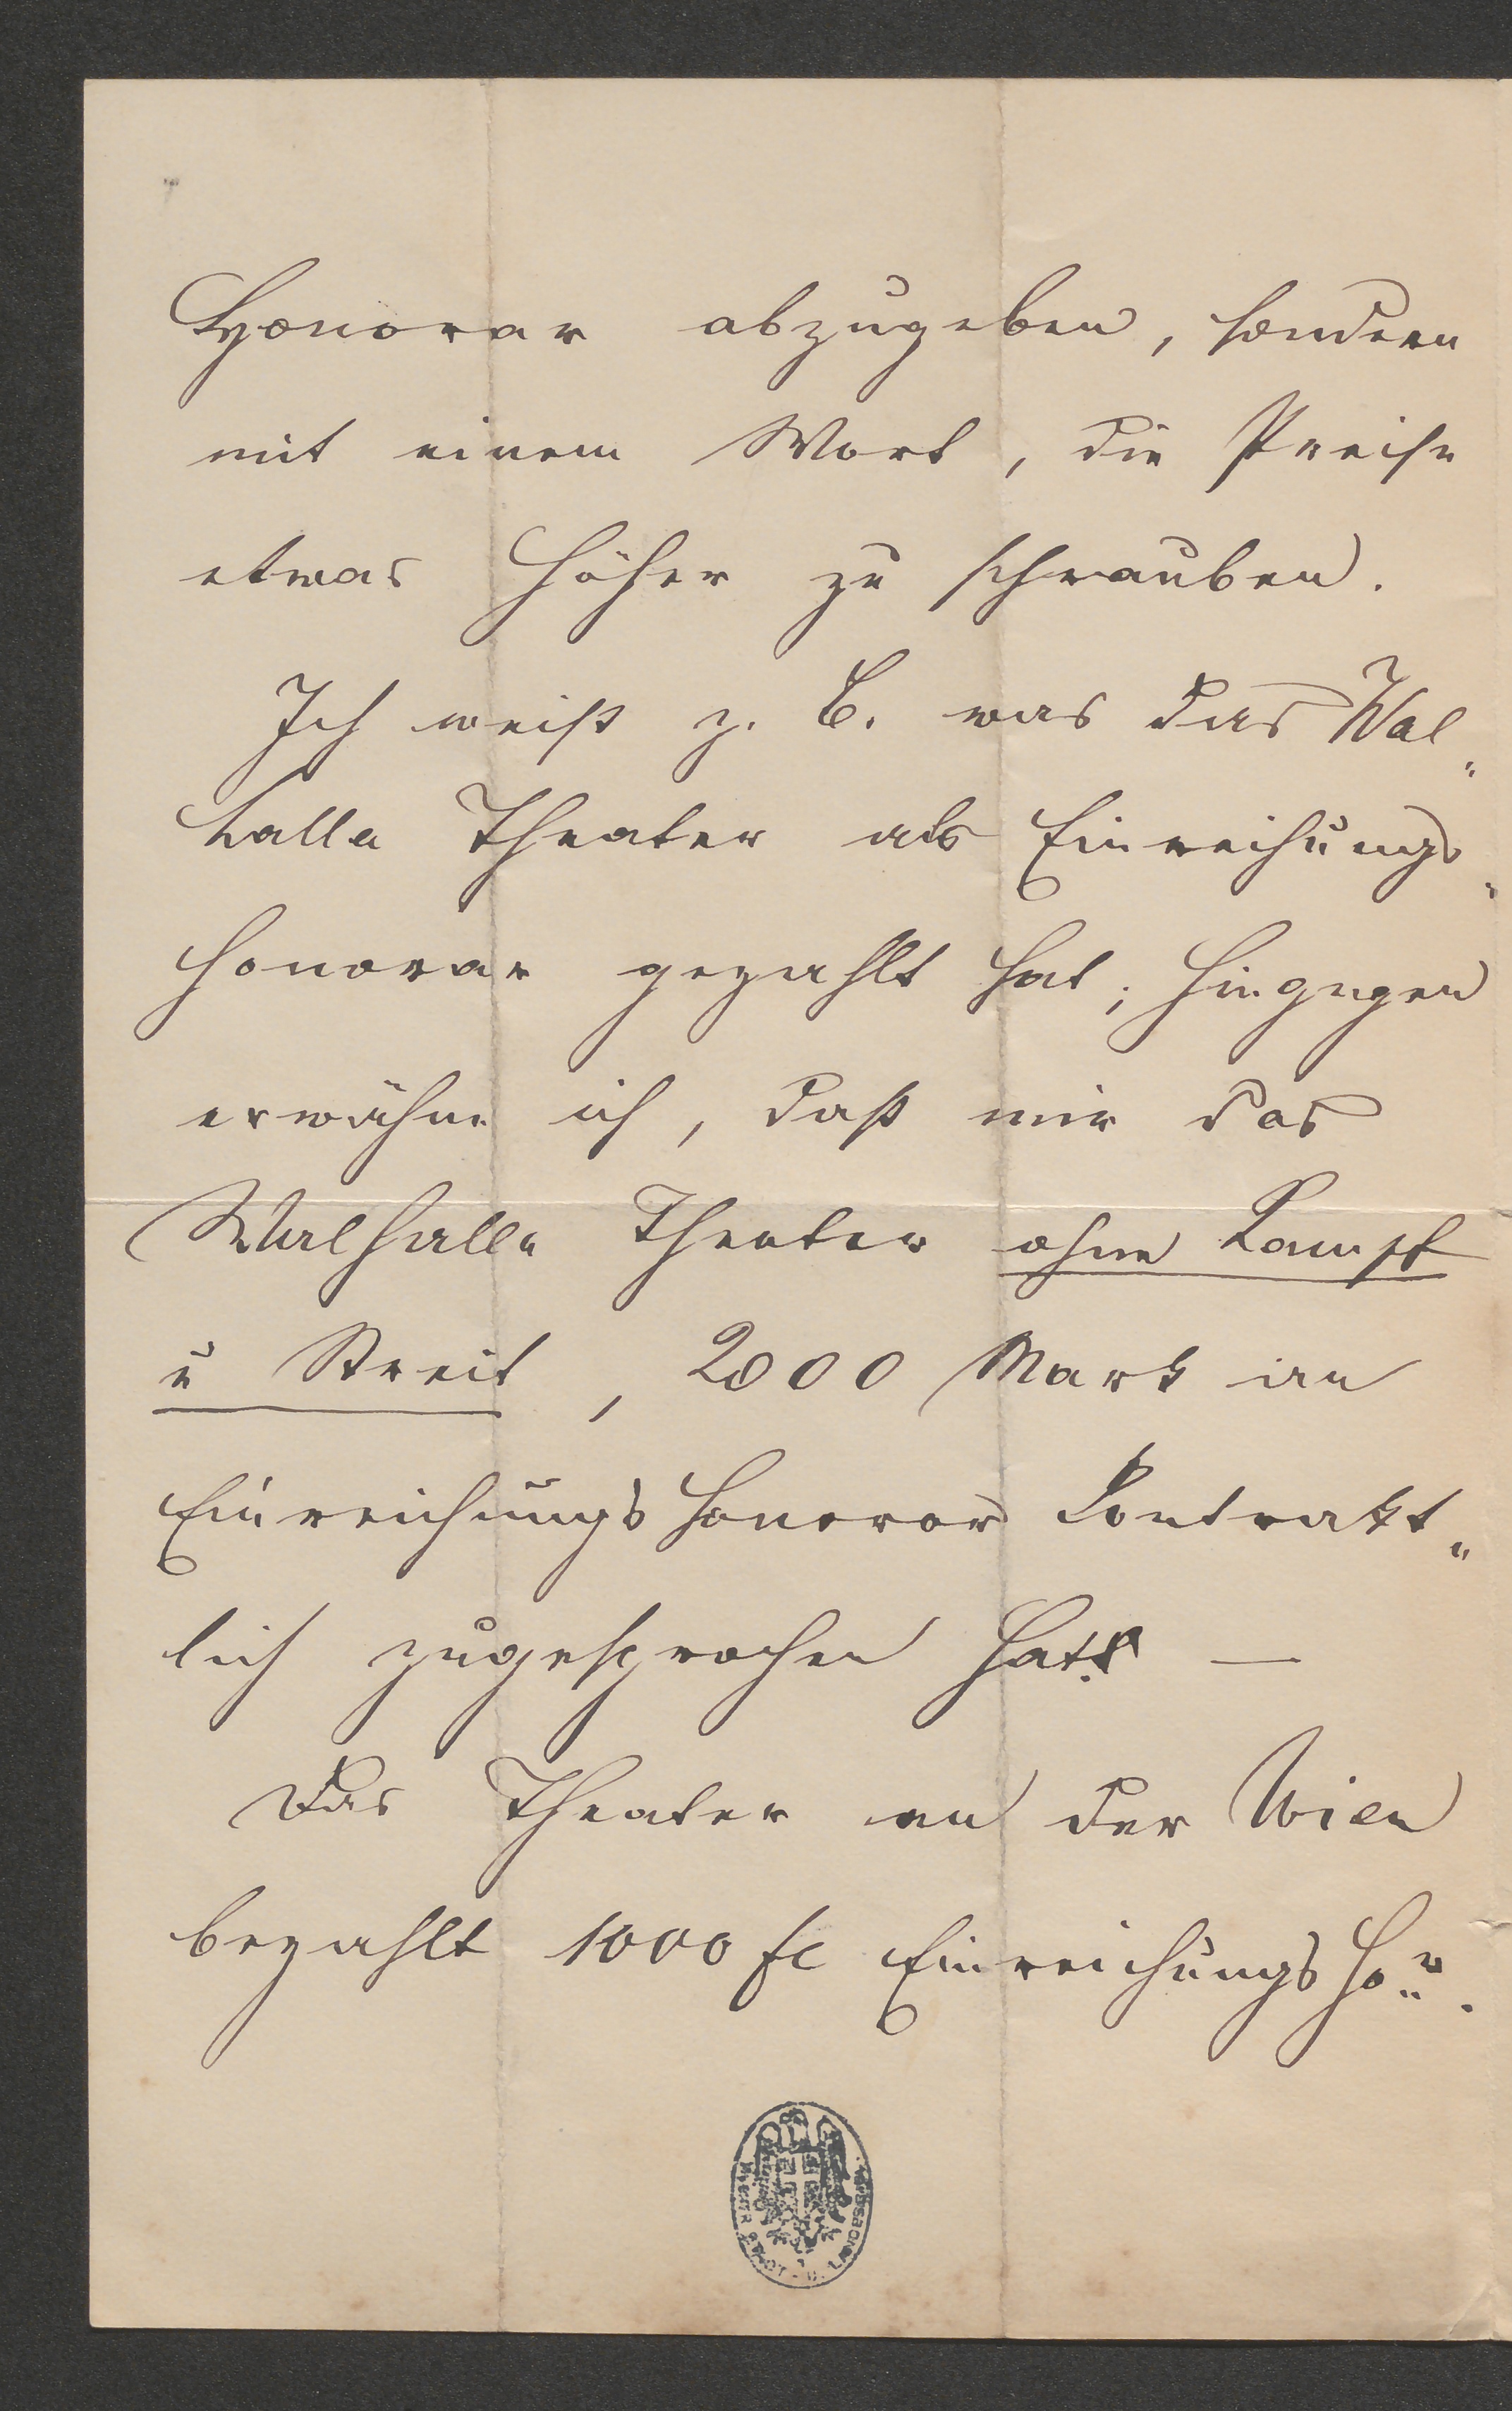 Honorar abzugeben, sondern
mit einem Wort, die Preise
etwas höher zu schrauben.
Ich weiß z. B. was das Wal„
halla Theater als Einreichungs„
honorar gezahlt hat; hingegen
erwähne ich, daß mir das
Walhalla Theater ohne Kampf
u Streit, 2000 Mark an
Einreichungshonorar Contrakt„
lich zugesprochen hat. —
Das Theater an der Wien
bezahlt 1000 fl Einreichungs Hon.